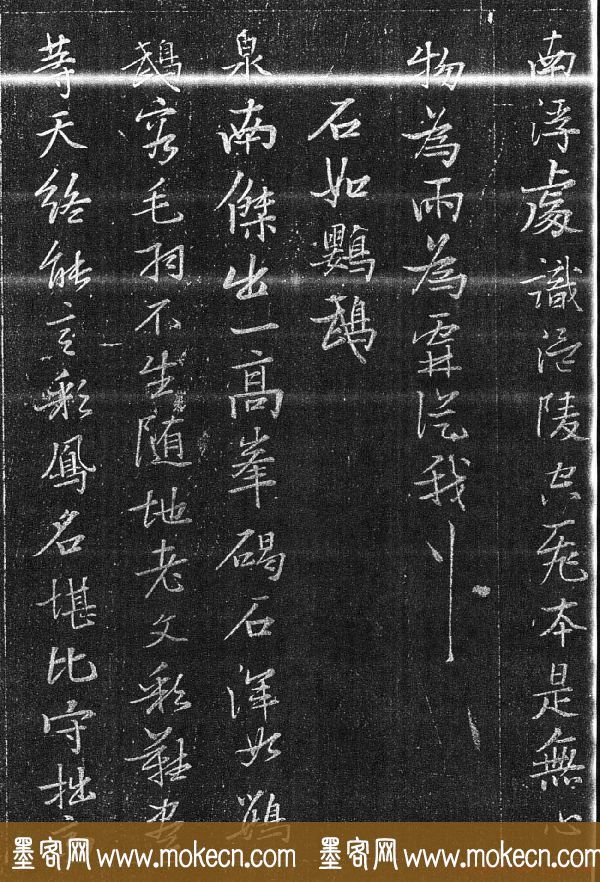 南浮處識涪陵死本是無心
物為雨為從我
石如鸚鵡
泉南傑出一高峯碣石渾如鸚
鵡容毛羽不生隨地老文彩難
等天終能言彩鳳名堪比守拙
墨客网 www.mokecn.com 墨客网 www.mokecn.com